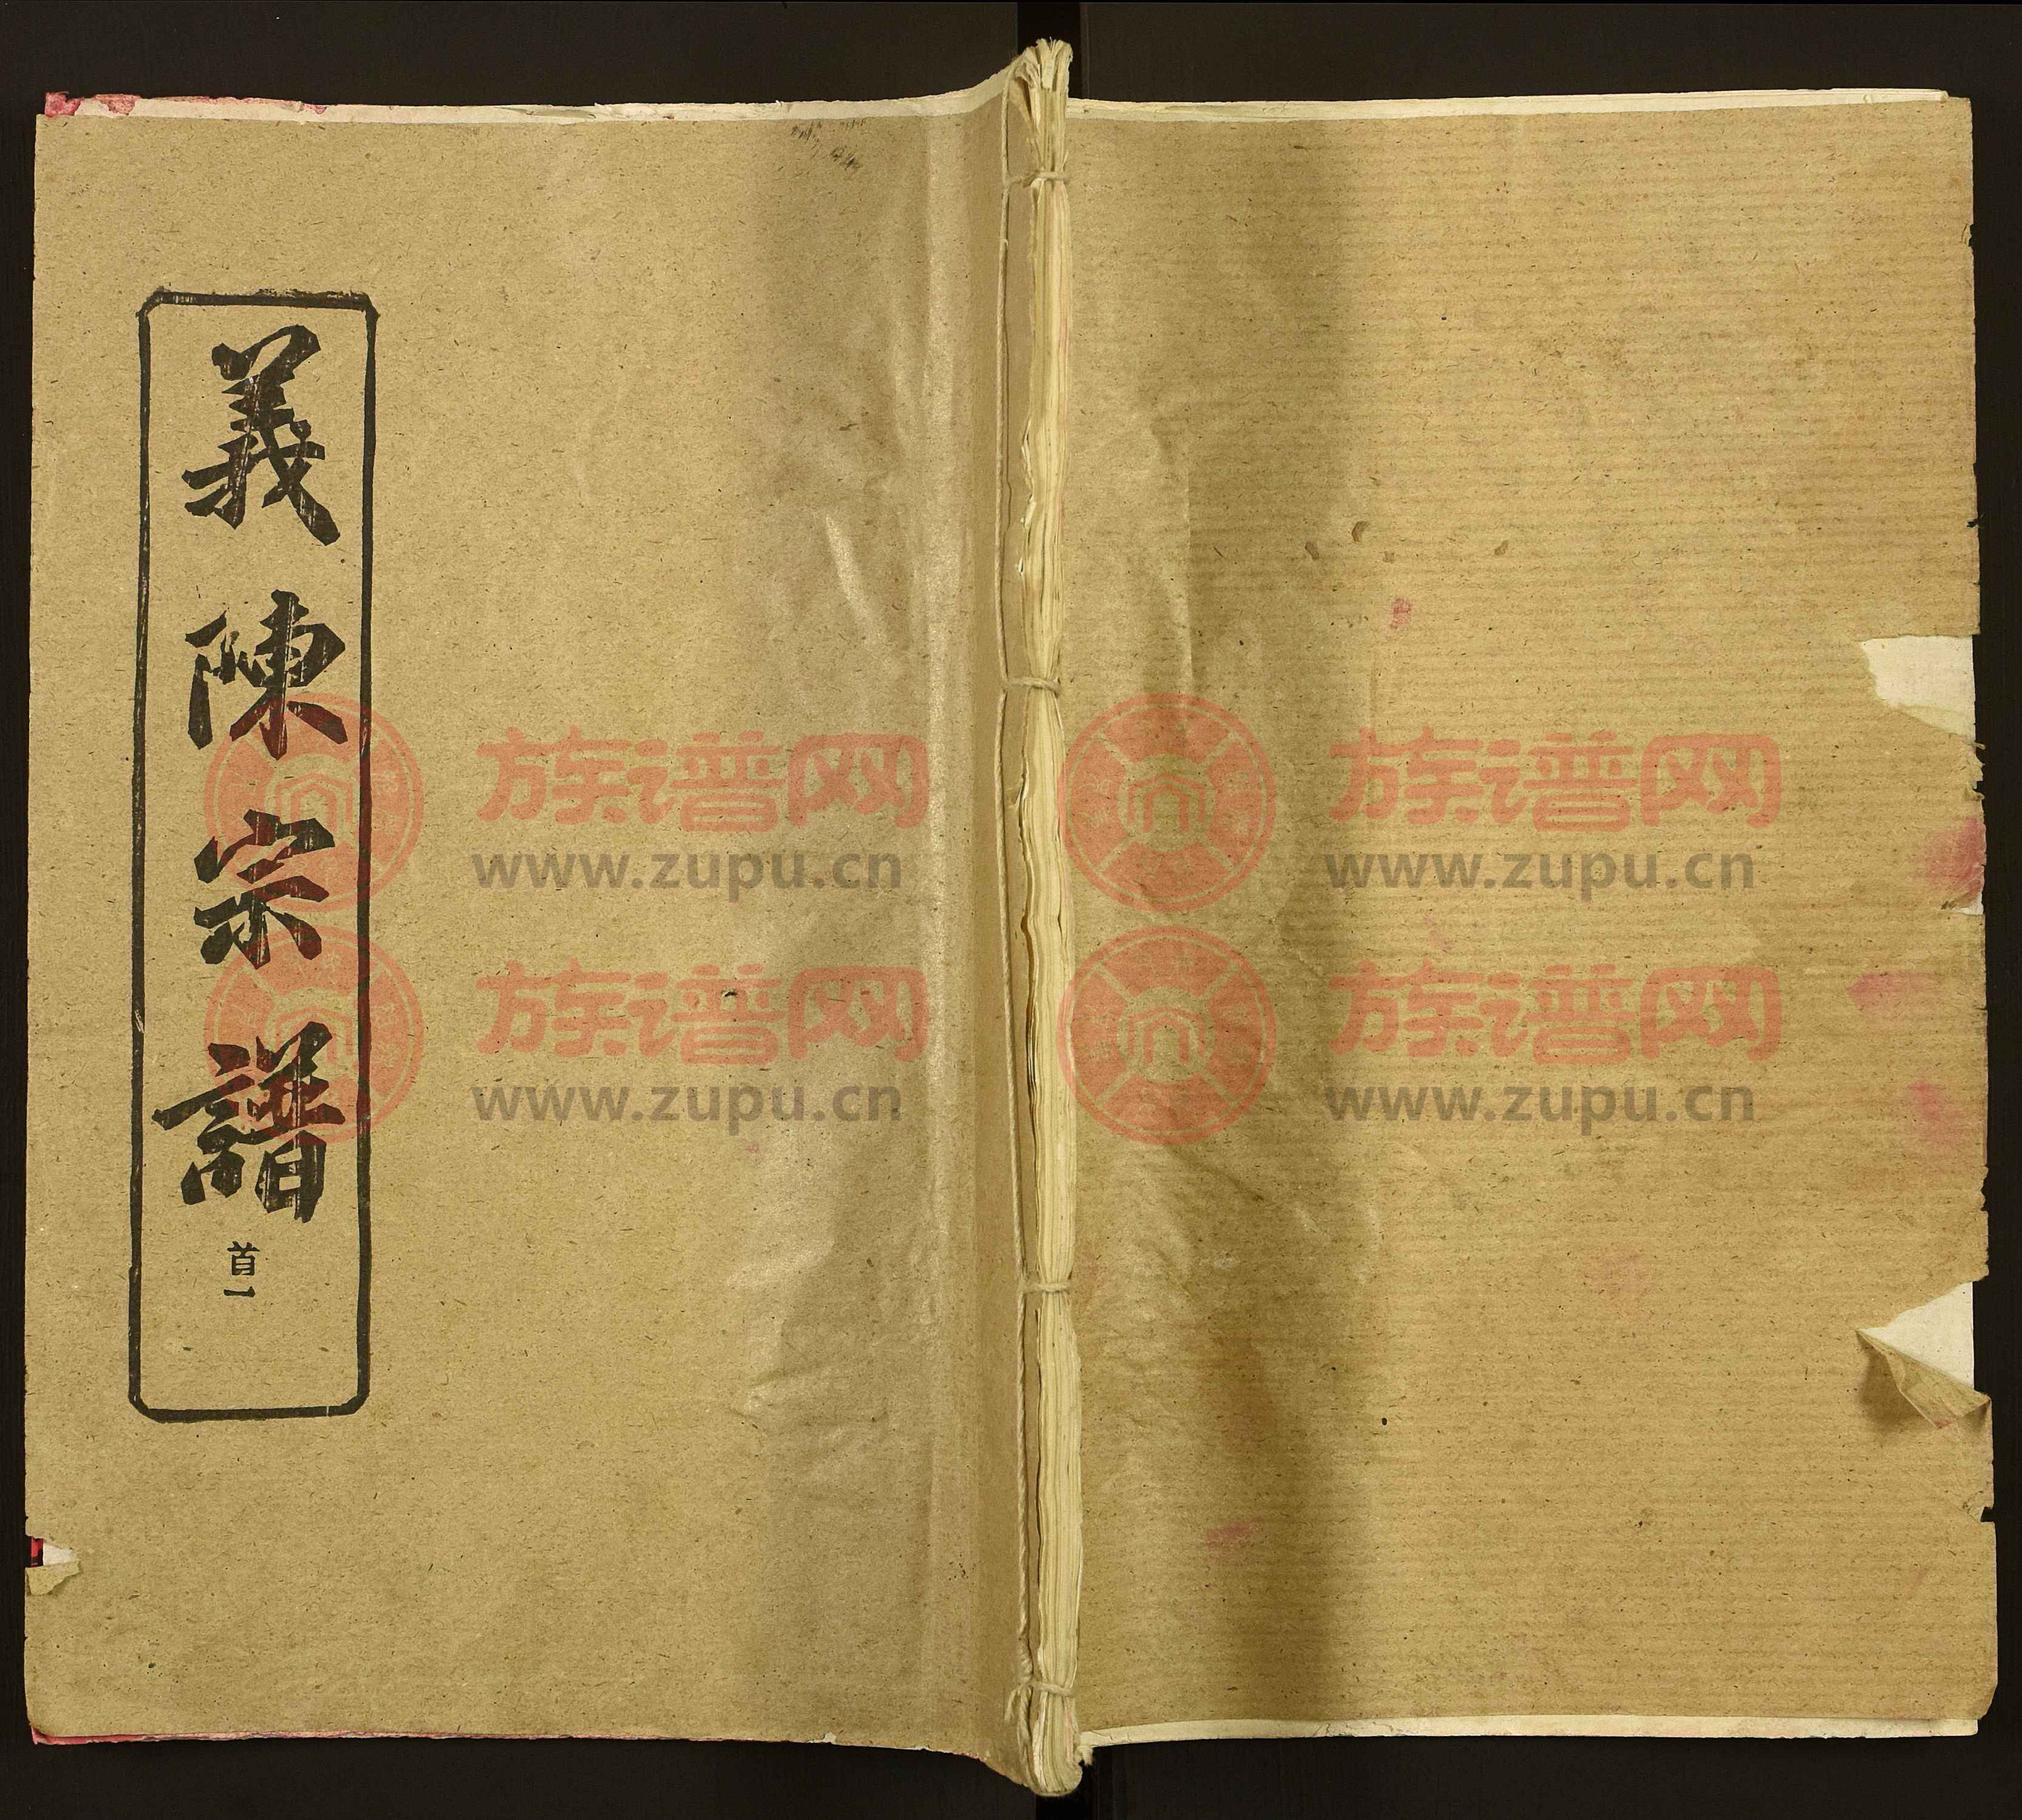 義陳宗譜
首一
族谱网 族谱网
www.zupu.cn www.zupu.cn
族谱网 族谱网
www.zupu.cn www.zupu.cn